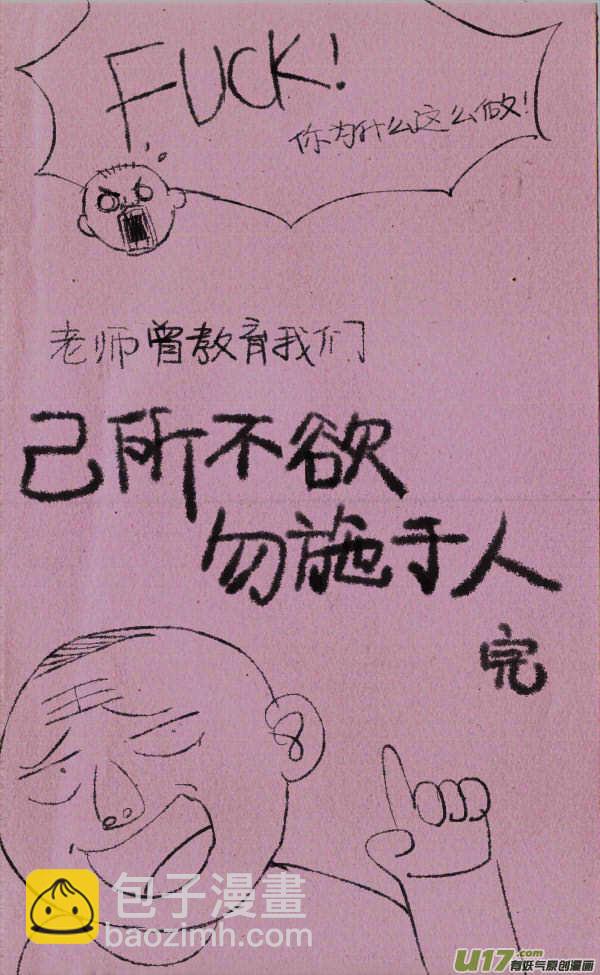 FUCK!
你为什么这么做!
老师曾教育我们
己所不欲
勿施于人
完
包子漫畫
baozimh.com
U17.com
有妖气原创漫画